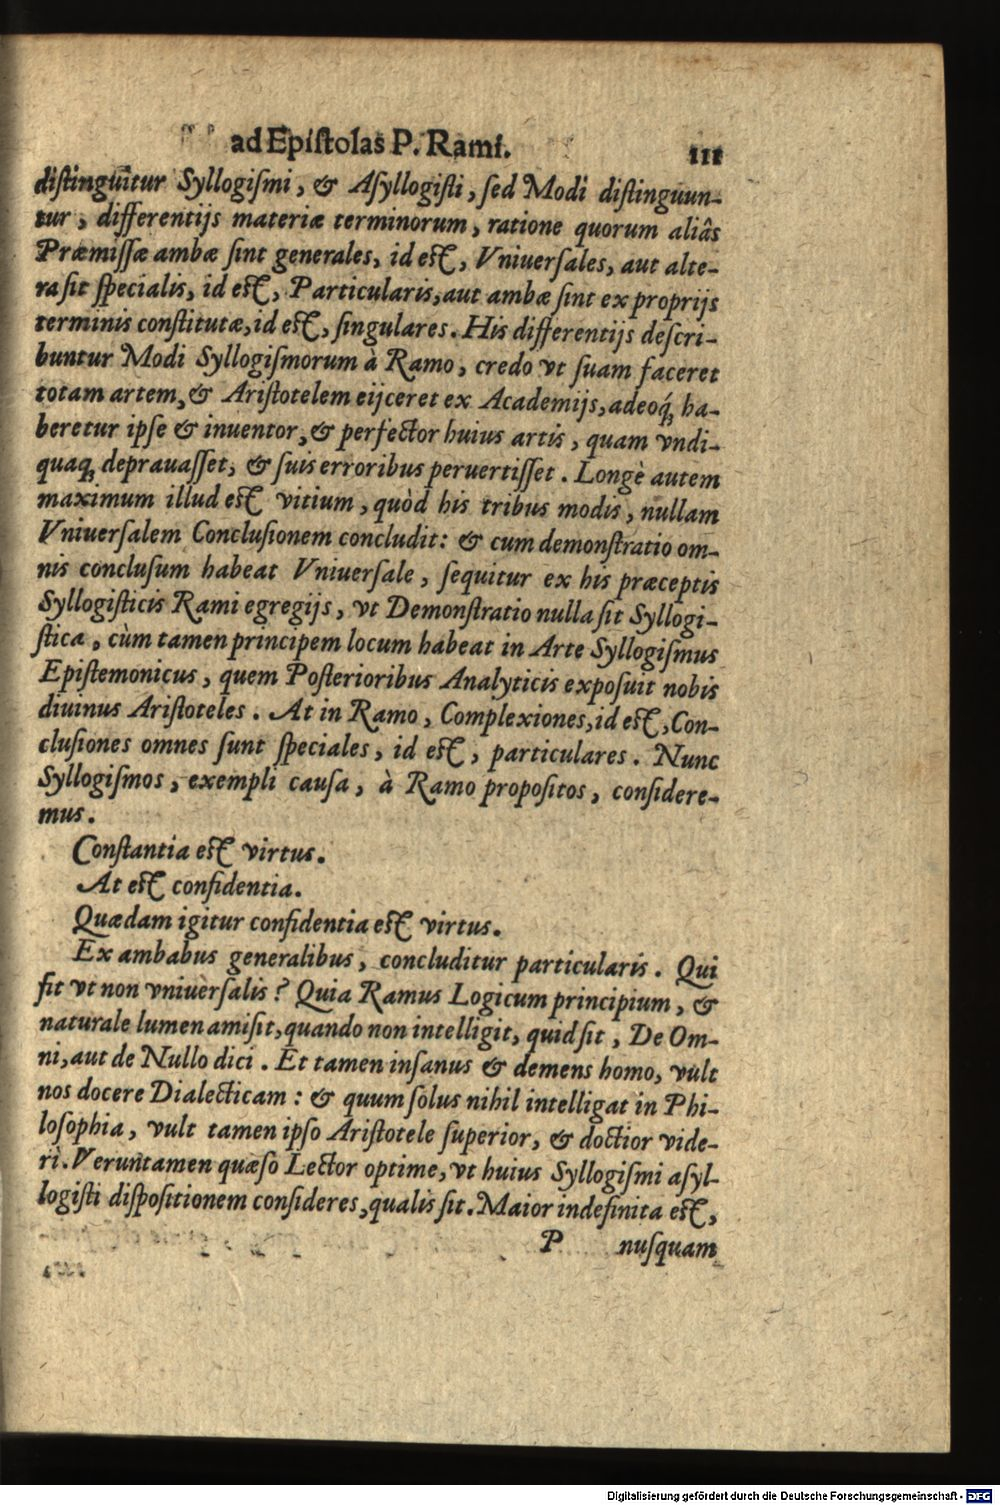 ad Epiſtolas P. Rami. 111
diſtinguūtur Syllogiſmi, & Aſyllogiſti, ſed Modi diſtinguun-
tur, differentijs materiæ terminorum, ratione quorum aliâs
Præmiſſæ ambæ ſint generales, id eſt, Vniuerſales, aut alte-
ra ſit ſpecialis, id eſt, Particularis, aut ambæ ſint ex proprijs
terminis conſtitutæ, id eſt, ſingulares. His differentijs deſcri-
buntur Modi Syllogiſmorum à Ramo, credo vt ſuam faceret
totam artem, & Ariſtotelem eijceret ex Academijs, adeoq́ꝫ ha-
beretur ipſe & inuentor, & perfector huius artis, quam vndi-
quaqꝫ deprauaſſet, & ſuis erroribus peruertiſſet. Longè autem
maximum illud eſt vitium, quòd his tribus modis, nullam
Vniuerſalem Concluſionem concludit: & cum demonſtratio om-
nis concluſum habeat Vniuerſale, ſequitur ex his præceptis
Syllogiſticis Rami egregijs, vt Demonſtratio nulla ſit Syllogi-
ſtica, cùm tamen principem locum habeat in Arte Syllogiſmus
Epiſtemonicus, quem Poſterioribus Analyticis expoſuit nobis
diuinus Ariſtoteles. At in Ramo, Complexiones, id eſt, Con-
cluſiones omnes ſunt ſpeciales, id eſt, particulares. Nunc
Syllogiſmos, exempli cauſa, à Ramo propoſitos, conſidere-
mus.
Conſtantia eſt virtus.
At eſt confidentia.
Quædam igitur confidentia eſt virtus.
Ex ambabus generalibus, concluditur particularis. Qui
fit vt non vniuerſalis? Quia Ramus Logicum principium, &
naturale lumen amiſit, quando non intelligit, quid ſit, De Om-
ni, aut de Nullo dici. Et tamen inſanus & demens homo, vult
nos docere Dialecticam: & quum ſolus nihil intelligat in Phi-
loſophia, vult tamen ipſo Ariſtotele ſuperior, & doctior vide-
ri. Veruntamen quæſo Lector optime, vt huius Syllogiſmi aſyl-
logiſti diſpoſitionem conſideres, qualis ſit. Maior indefinita eſt,
P nuſquam
Digitalisierung gefördert durch die Deutsche Forschungsgemeinschaft - DFG